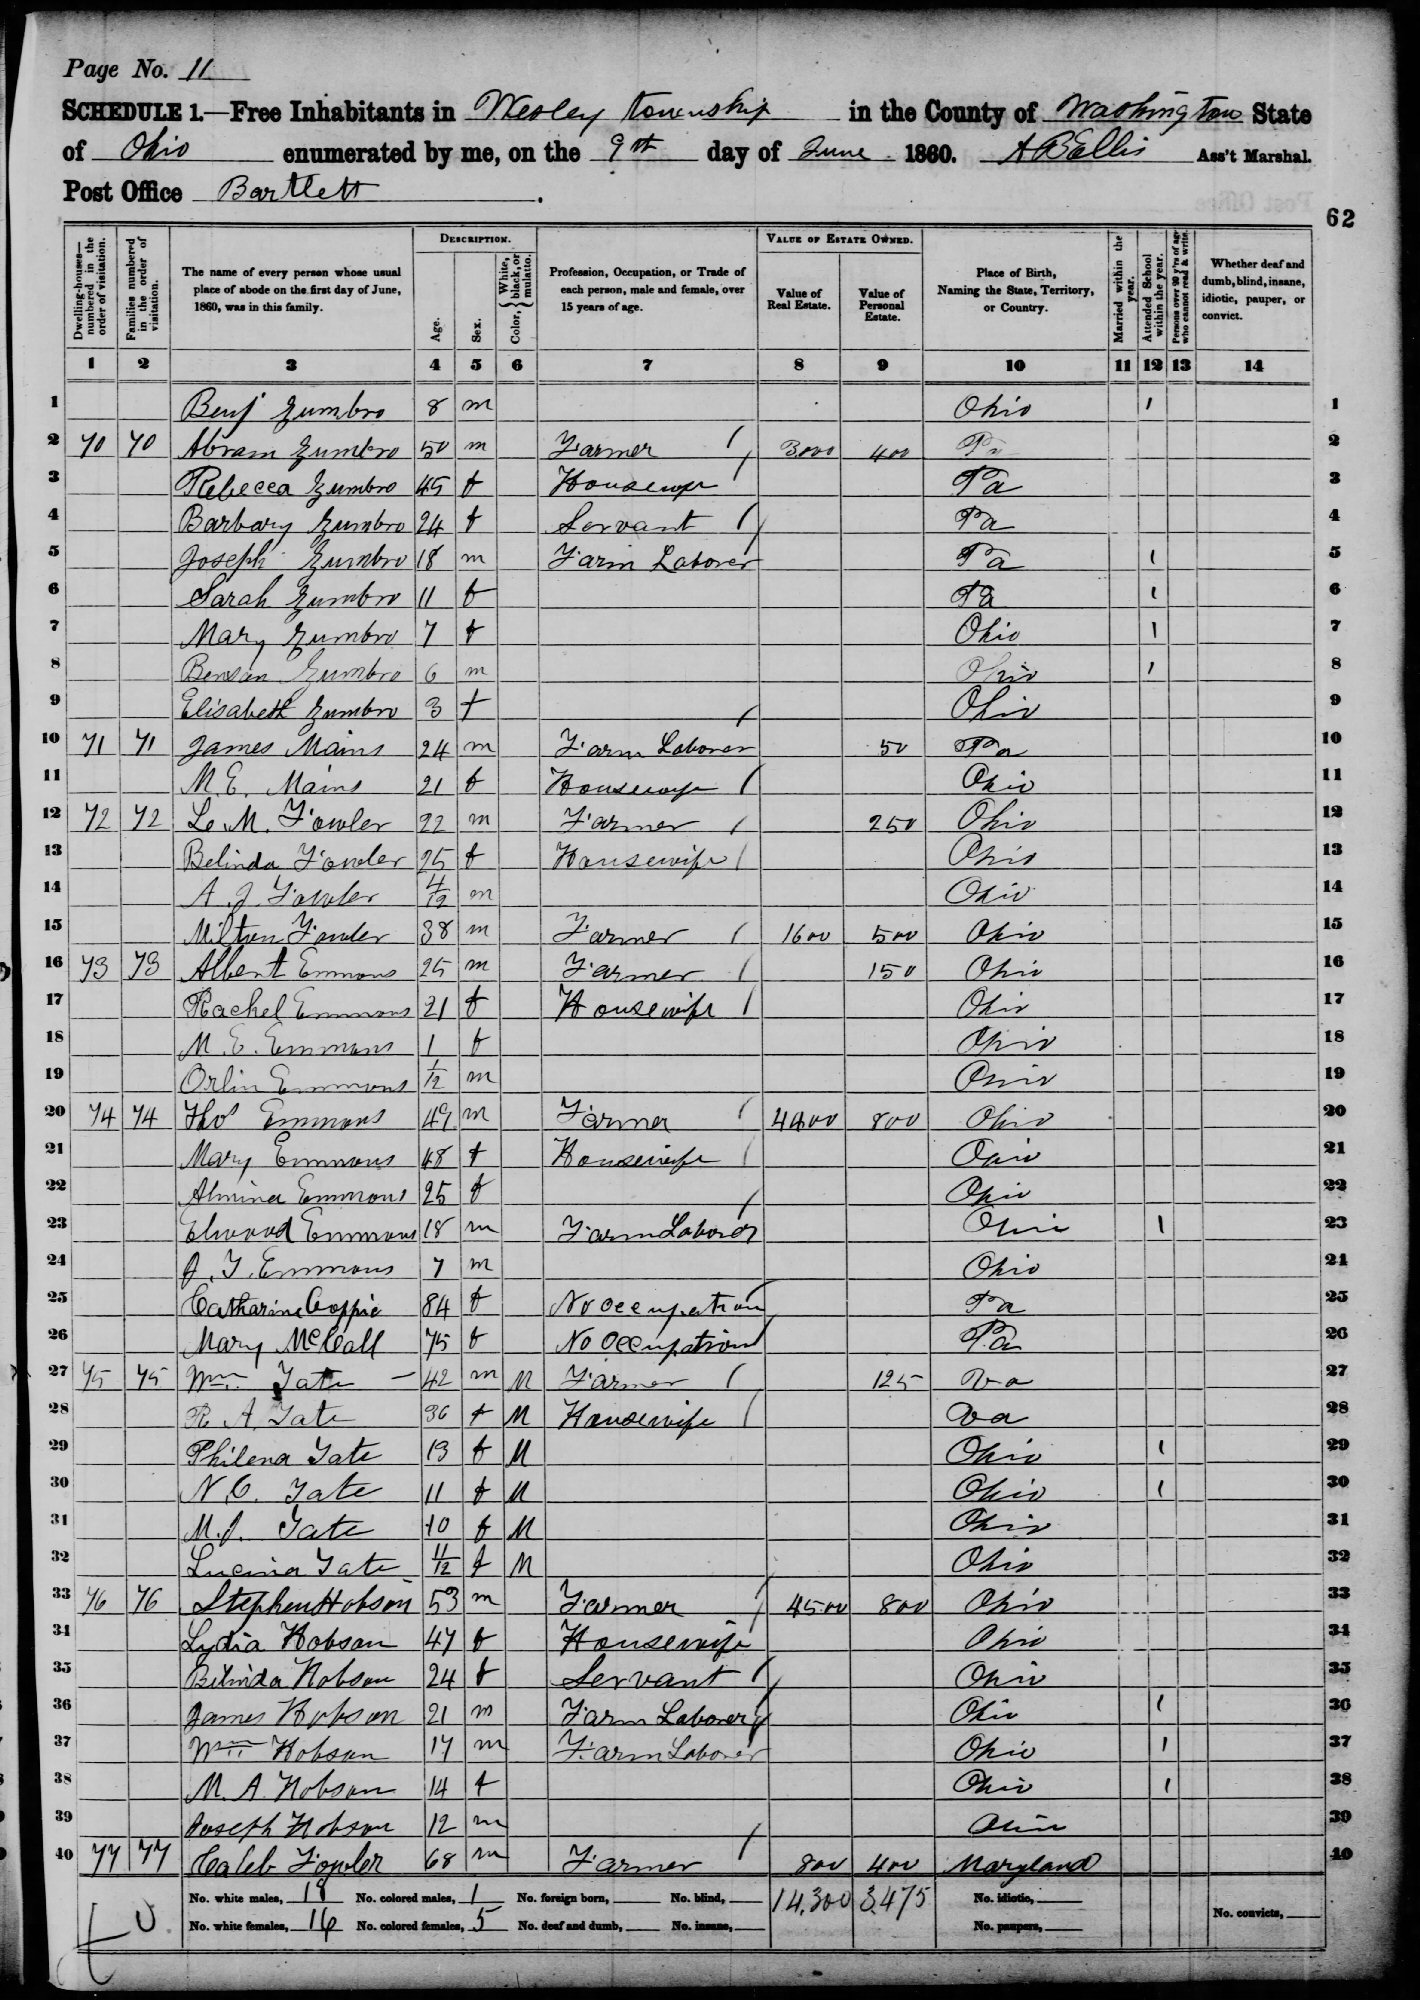 Page No. 11
SCHEDULE 1.—Free Inhabitants in Wesley township in the County of Washington State
of Ohio enumerated by me, on the 9th day of June 1860. A B Ellis Ass't Marshal.
Post Office Bartlett.
62
Dwelling-houses—numbered in the order of visitation. Families numbered in the order of visitation. The name of every person whose usual place of abode on the first day of June, 1860, was in this family. DESCRIPTION. Age. Sex. Color, { White, black, or mulatto. Profession, Occupation, or Trade of each person, male and female, over 15 years of age. VALUE OF ESTATE OWNED. Value of Real Estate. Value of Personal Estate. Place of Birth, Naming the State, Territory, or Country. Married within the year. Attended School within the year. Persons over 20 y'rs of age who cannot read & write. Whether deaf and dumb, blind, insane, idiotic, pauper, or convict.
1 2 3 4 5 6 7 8 9 10 11 12 13 14
1 Benj Zumbro 8 m Ohio 1 1
2 70 70 Abram Zumbro 50 m Farmer 3000 400 Pa 2
3 Rebecca Zumbro 45 f Housewife Pa 3
4 Barbary Zumbro 24 f Servant Pa 4
5 Joseph Zumbro 18 m Farm Laborer Pa 1 5
6 Sarah Zumbro 11 f Pa 1 6
7 Mary Zumbro 7 f Ohio 1 7
8 Benson Zumbro 6 m Ohio 1 8
9 Elisabeth Zumbro 3 f Ohio 9
10 71 71 James Mains 24 m Farm Laborer 50 Pa 10
11 M. E. Mains 21 f Housewife Ohio 11
12 72 72 L. M. Fowler 22 m Farmer 250 Ohio 12
13 Belinda Fowler 25 f Housewife Ohio 13
14 A. J. Fowler 4/12 m Ohio 14
15 Milton Fowler 38 m Farmer 1600 500 Ohio 15
16 73 73 Albert Emmons 25 m Farmer 150 Ohio 16
17 Rachel Emmons 21 f Housewife Ohio 17
18 M. E. Emmons 1 f Ohio 18
19 Orlin Emmons 1/12 m Ohio 19
20 74 74 Thos Emmons 49 m Farmer 4400 800 Ohio 20
21 Mary Emmons 48 f Housewife Ohio 21
22 Almina Emmons 25 f Ohio 22
23 Elwood Emmons 18 m Farm Laborer Ohio 1 23
24 J. T. Emmons 7 m Ohio 24
25 Catharine Coppic 84 f No Occupation Pa 25
26 Mary McCall 75 f No Occupation Pa 26
27 75 75 Wm. Tate 42 m M Farmer 125 Va 27
28 R. A. Tate 36 f M Housewife Va 28
29 Philena Tate 13 f M Ohio 1 29
30 N. C. Tate 11 f M Ohio 1 30
31 M. J. Tate 10 f M Ohio 31
32 Lucina Tate 11/12 f M Ohio 32
33 76 76 Stephen Hobson 53 m Farmer 4500 800 Ohio 33
34 Lydia Hobson 47 f Housewife Ohio 34
35 Belinda Hobson 24 f Servant Ohio 35
36 James Hobson 21 m Farm Laborer Ohio 1 36
37 Wm. Hobson 17 m Farm Laborer Ohio 1 37
38 M. A. Hobson 14 f Ohio 1 38
39 Joseph Hobson 12 m Ohio 39
40 77 77 Caleb Fowler 68 m Farmer 800 400 Maryland 40
No. white males, 18 No. colored males, 1 No. foreign born, No. blind, 14,300 3,475 No. idiotic,
No. white females, 16 No. colored females, 5 No. deaf and dumb, No. insane, No. paupers, No. convicts,